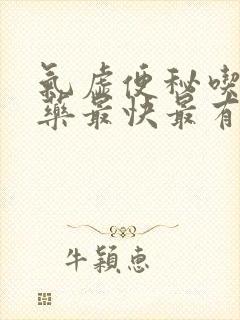 氣虛便秘喫
藥最快最有
牛穎惠